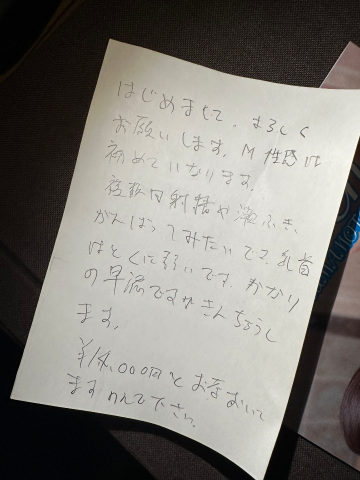 はじめまして、よろしく
お願いします。M性感は
初めてになります。
複数回射精や潮ふき、
がんばってみたいです。乳首
はとくに弱いです。かなり
の早漏ですがきんちょうし
ます。
¥14,000円とお茶おいて
ます のんで下さい。